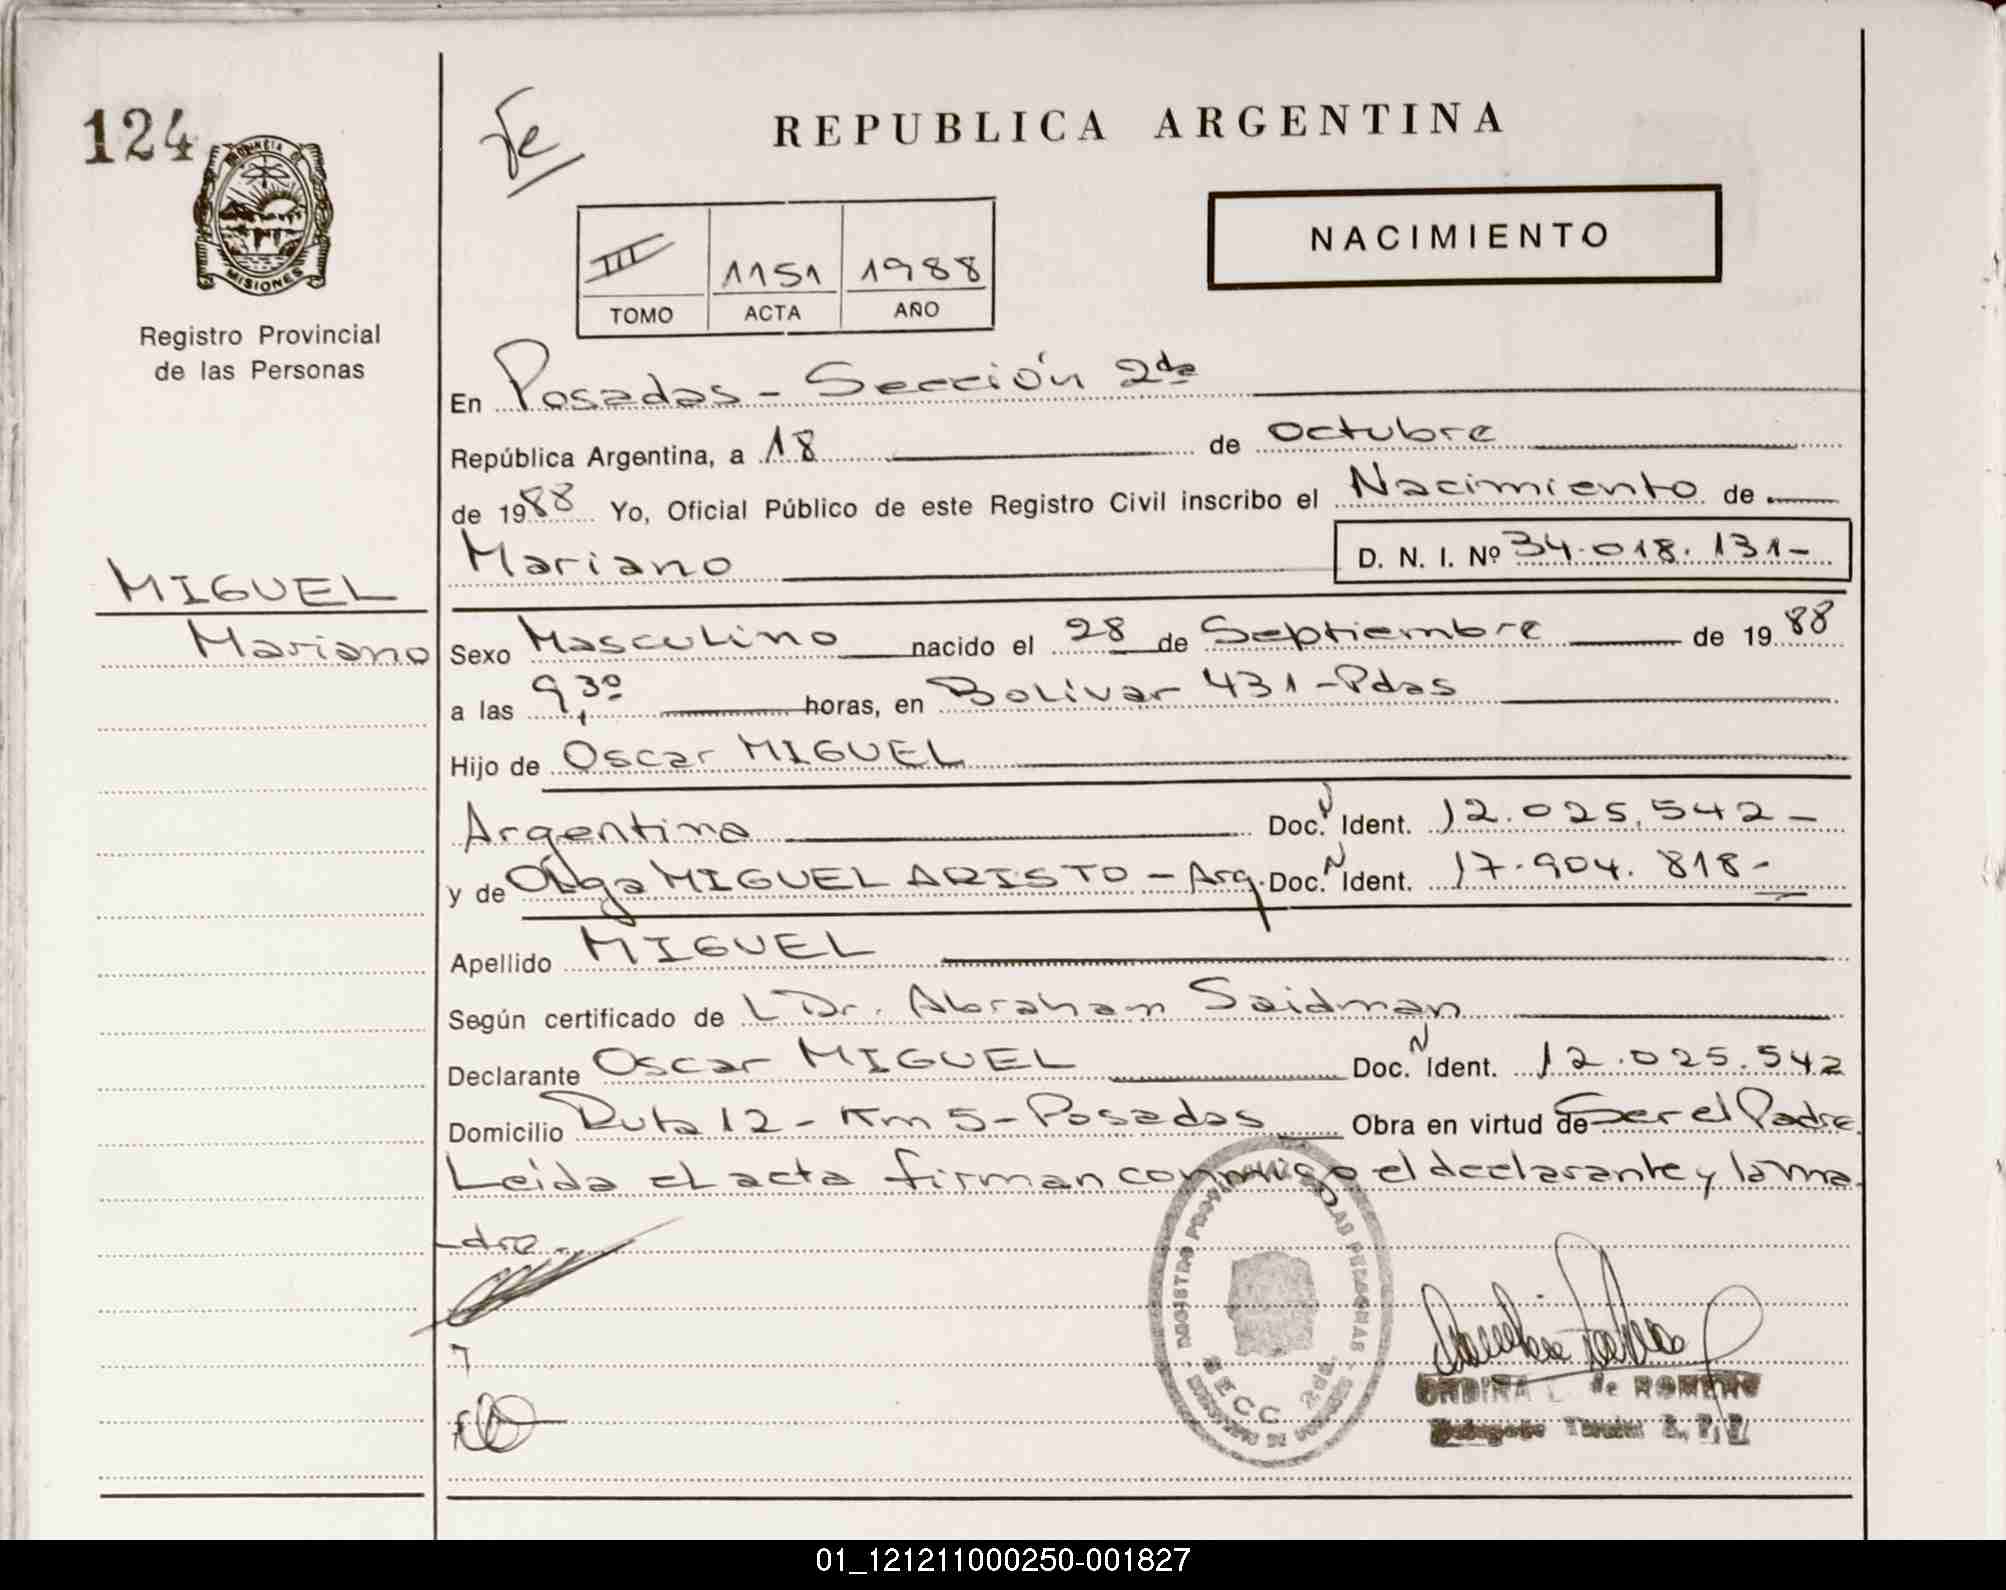 124
REPUBLICA ARGENTINA
PROVINCIA DE
MISIONES
NACIMIENTO
III 1151 1988
TOMO ACTA AÑO
Registro Provincial
de las Personas
En Posadas - Sección 2da
República Argentina, a 18 de octubre
de 1988 Yo, Oficial Público de este Registro Civil inscribo el Nacimiento de
Mariano D. N. I. Nº 34.018.131-
MIGUEL
Mariano
Sexo Masculino nacido el 28 de Septiembre de 1988
a las 9,30 horas, en Bolivar 431-Pdas
Hijo de Oscar MIGUEL
Argentino Doc. N Ident. 12.025.542-
y de Olga MIGUEL ARISTO - Arg. Doc. N Ident. 17.904.818-
Apellido MIGUEL
Según certificado de L Dr. Abraham Saidman
Declarante Oscar MIGUEL Doc. N Ident. 12.025.542
Domicilio Ruta 12 - Km 5 - Posadas Obra en virtud de Ser el Padre.
Leida el acta firman conmigo el declarante y la ma
-dre.
REGISTRO DE LAS PERSONAS
SECC 2da
de ROMERO
01_121211000250-001827